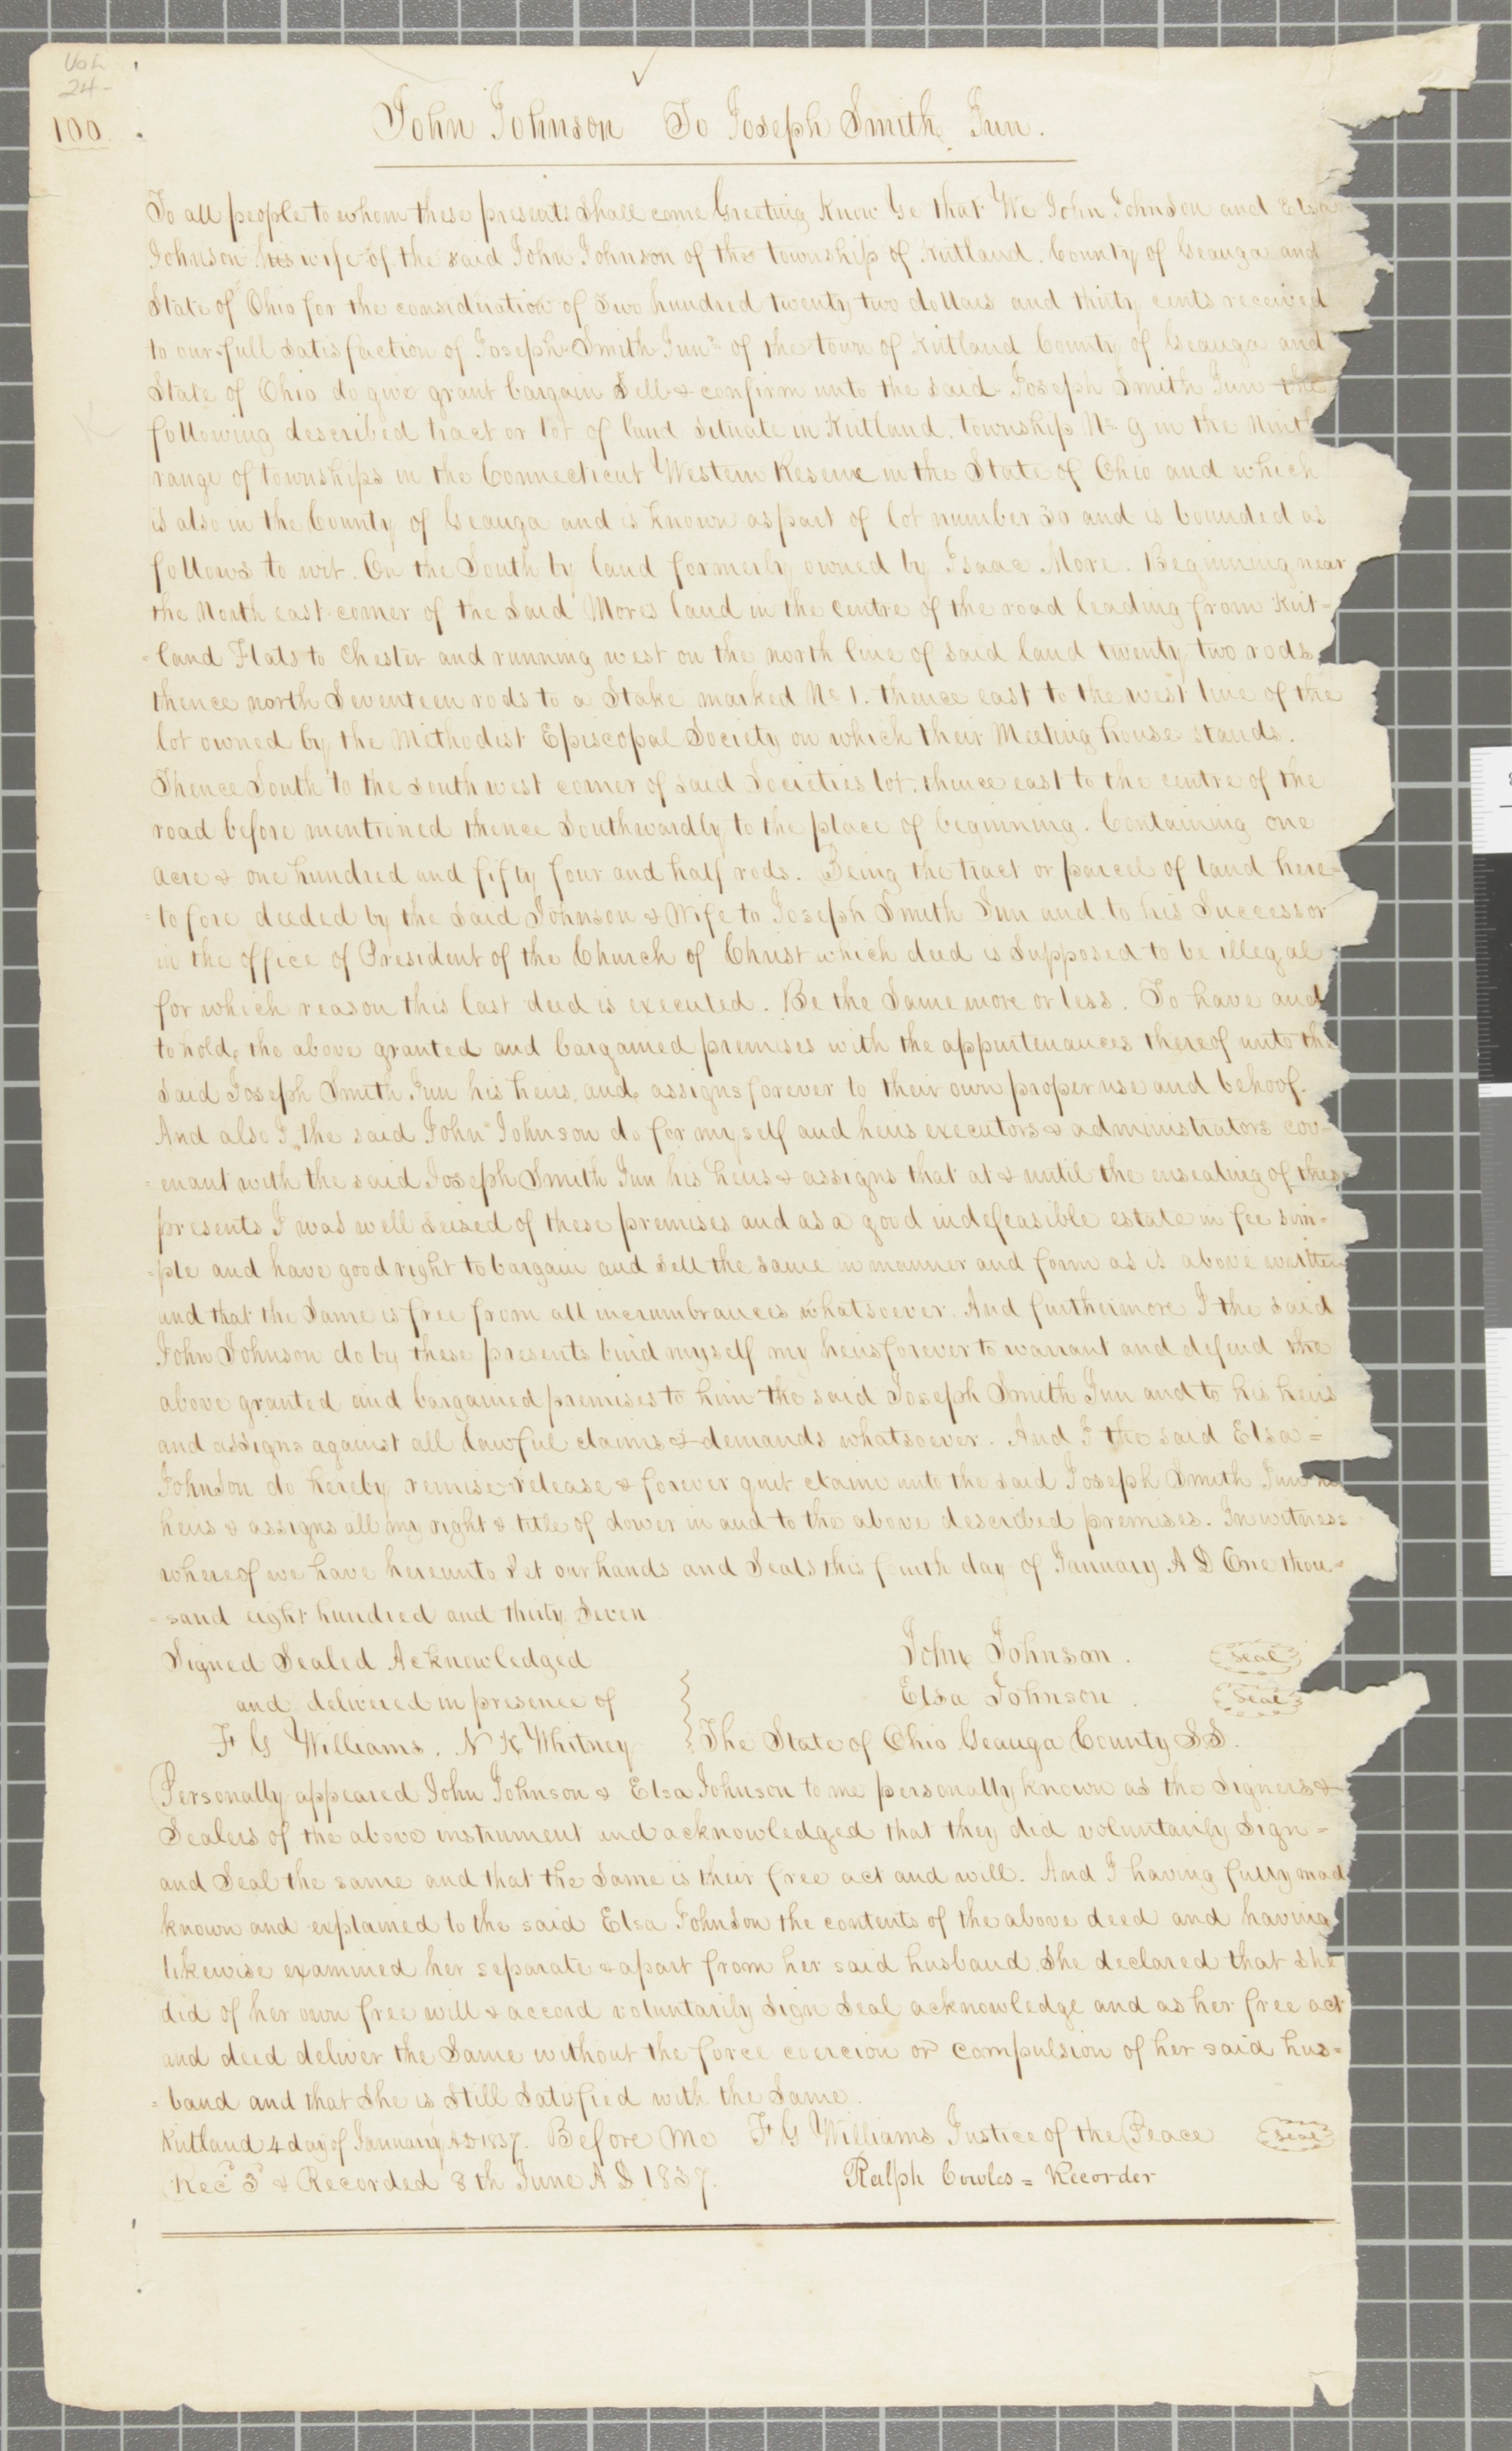 Vol
24-
100
John Johnson To Joseph Smith Jun.
To all people to whom these presents Shall come Greeting Know Ye that We John Johnson and Elsa
Johnson his wife of the said John Johnson of the township of Kirtland. County of Geauga and
State of Ohio for the consideration of Two hundred twenty two dollars and thirty cents received
to our full Satisfaction of Joseph Smith Junr of the town of Kirtland County of Geauga and
State of Ohio do give grant bargain Sell & confirm unto the said Joseph Smith Jun the
following described tract or lot of land Situate in Kirtland. township No 9 in the Ninth
range of townships in the Connecticut Western Reserve in the State of Ohio and which
is also in the County of Geauga and is known as part of lot number 30 and is bounded as
follows to wit. On the South by land formerly owned by Isaac More. Beginning near
the North east corner of the Said Mores land in the centre of the road leading from Kirt=
=land Flats to Chester and running west on the north line of said land twenty two rods
thence north Seventeen rods to a Stake marked No 1. thence east to the west line of the
lot owned by the Methodist Episcopal Society on which their Meeting house stands.
Thence South to the south west corner of said Societies lot. thence east to the centre of the
road before mentioned thence Southwardly to the place of beginning. Containing one
acre & one hundred and fifty four and half rods. Being the tract or parcel of land here=
=tofore deeded by the Said Johnson & Wife to Joseph Smith Jun and to his Successor
in the office of President of the Church of Christ which deed is Supposed to be illegal
for which reason this last deed is executed. Be the Same more or less. To have and
to hold, the above granted and bargained premises with the appurtenances thereof unto the
Said Joseph Smith Jun his heirs, and, assigns forever to their own proper use and behoof.
And also I, the said John Johnson do for myself and heirs executors & administrators cov=
=enant with the said Joseph Smith Jun his heirs & assigns that at & until the ensealing of these
presents I was well Seized of these premises and as a good indefeasible estate in fee sim=
=ple and have good right to bargain and Sell the Same in manner and form as is above written
and that the Same is free from all incumbrances whatsoever. And furthermore I the said
John Johnson do by these presents bind myself my heirs forever to warrant and defend the
above granted and bargained premises to him the said Joseph Smith Jun and to his heirs
and assigns against all lawful claims & demands whatsoever. And I the said Elsa =
Johnson do hereby remise release & forever quit claim unto the said Joseph Smith Jun
heirs & assigns all my right & title of dower in and to the above described premises. In witness=
whereof we have hereunto Set our hands and Seals this day of January A D One thou=
=sand eight hundred and thirty Seven
Signed Sealed Acknowledged
and delivered in presence of
F G Williams. N K Whitney
John Johnson. Seal
Elsa Johnson. Seal
The State of Ohio Geauga County SS.
Personally appeared John Johnson & Elsa Johnson to me personally known as the Signers &
Sealers of the above instrument and acknowledged that they did voluntarily Sign =
and Seal the same and that the Same is their free act and will. And I having fully mad
known and explained to the said Elsa Johnson the contents of the above deed and having
likewise examined her separate & apart from her said husband She declared that She
did of her own free will & accord voluntarily Sign Seal acknowledge and as her free act
and deed deliver the Same without the force coercion or compulsion of her said hus=
=band and that She is Still Satisfied with the Same.
Kirtland 4 day of January AD 1837. Before Me F G Williams Justice of the Peace Seal
Recd 3d & Recorded 8th June A D 1837. Ralph Cowles = Recorder